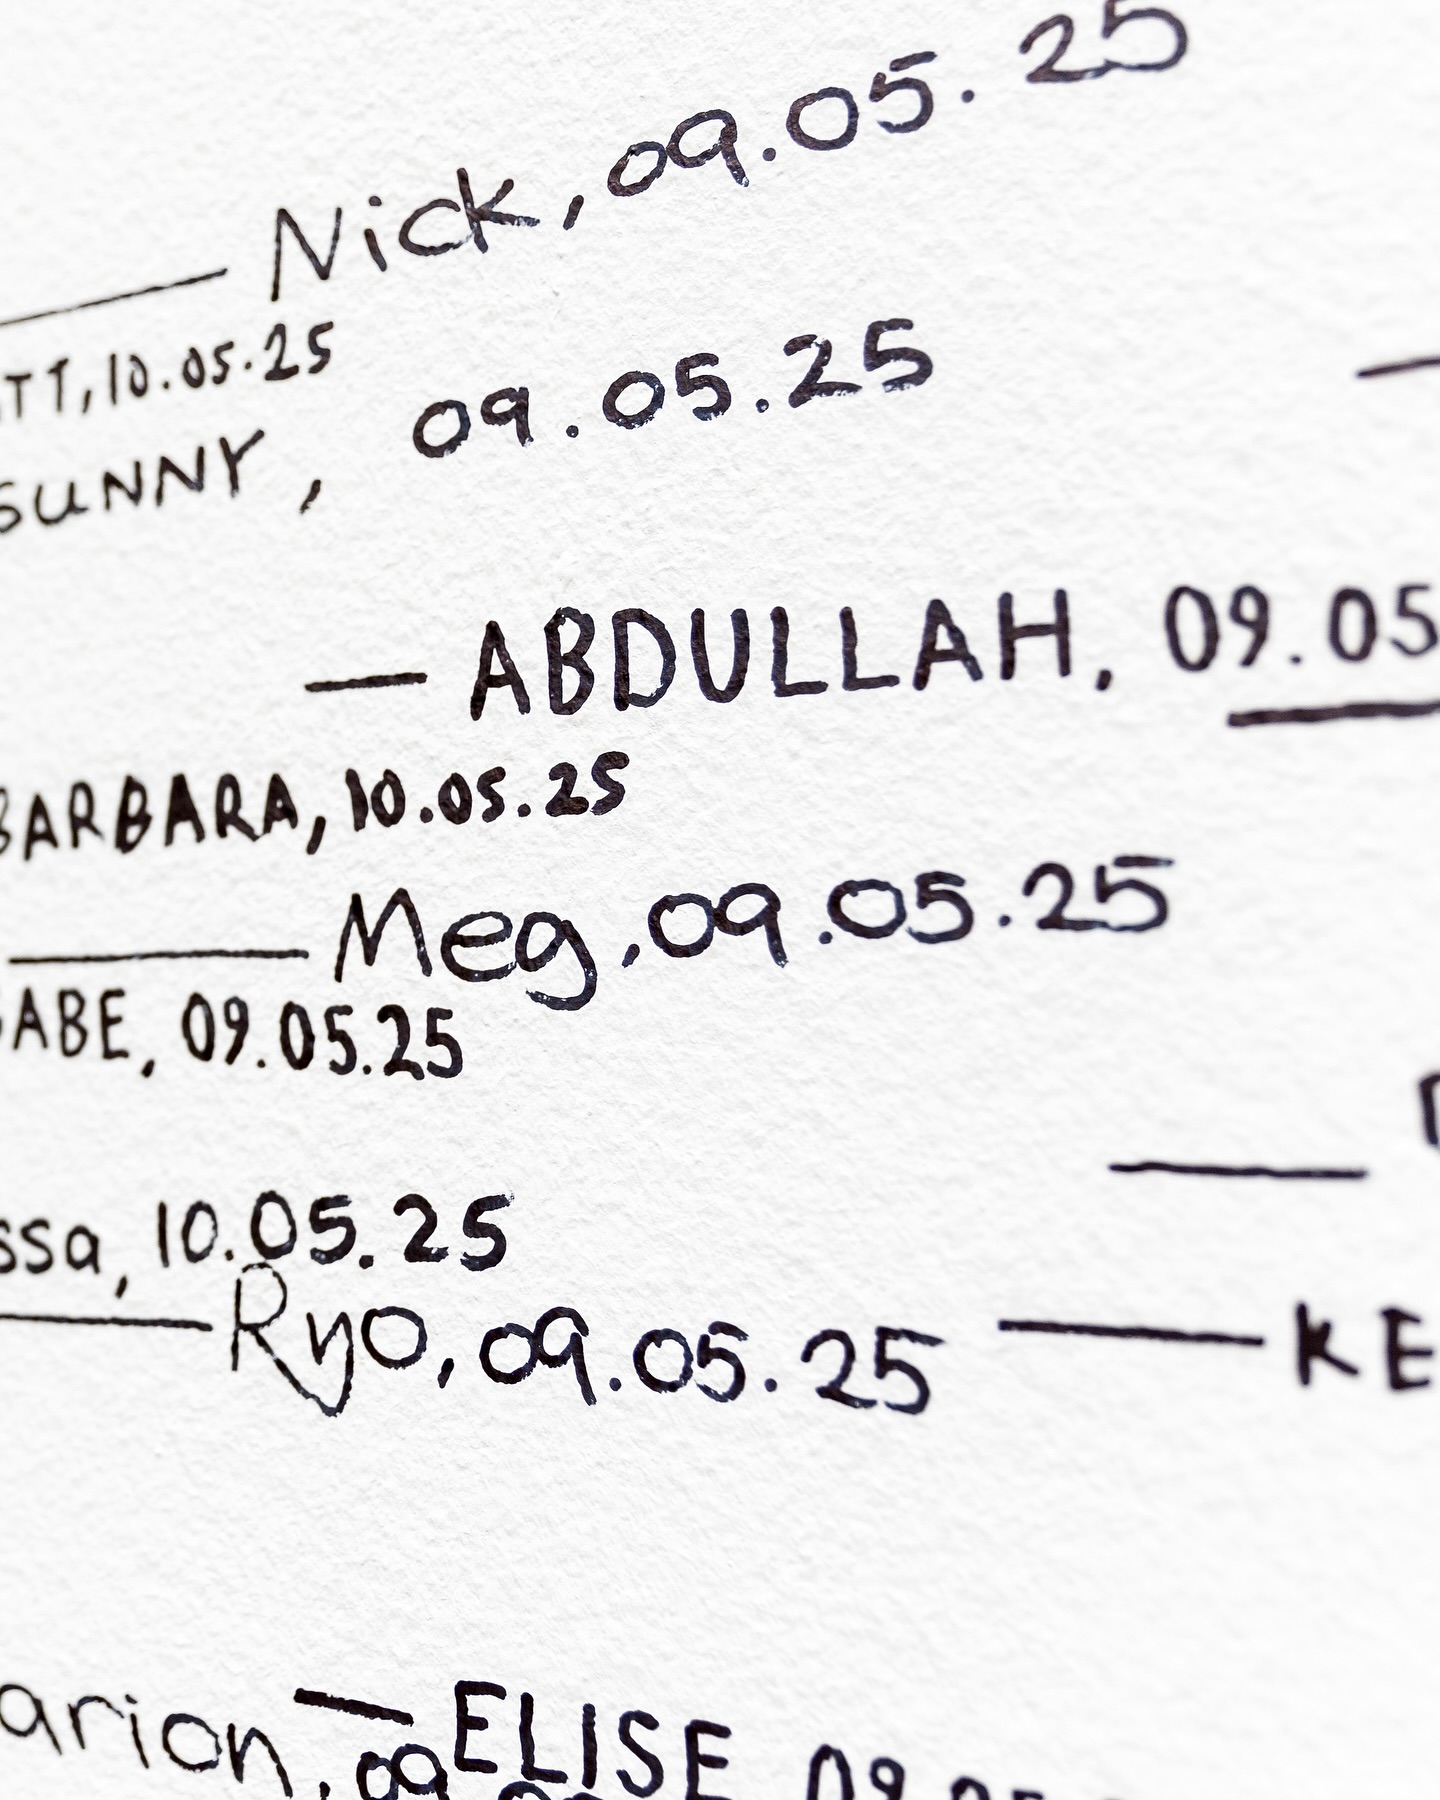 Nick, 09.05.25
TT, 10.05.25
SUNNY, 09.05.25
ABDULLAH, 09.05
BARBARA, 10.05.25
Meg, 09.05.25
ABE, 09.05.25
ssa, 10.05.25
Ryo, 09.05.25
KE
ELISE 09.05
arion, 09